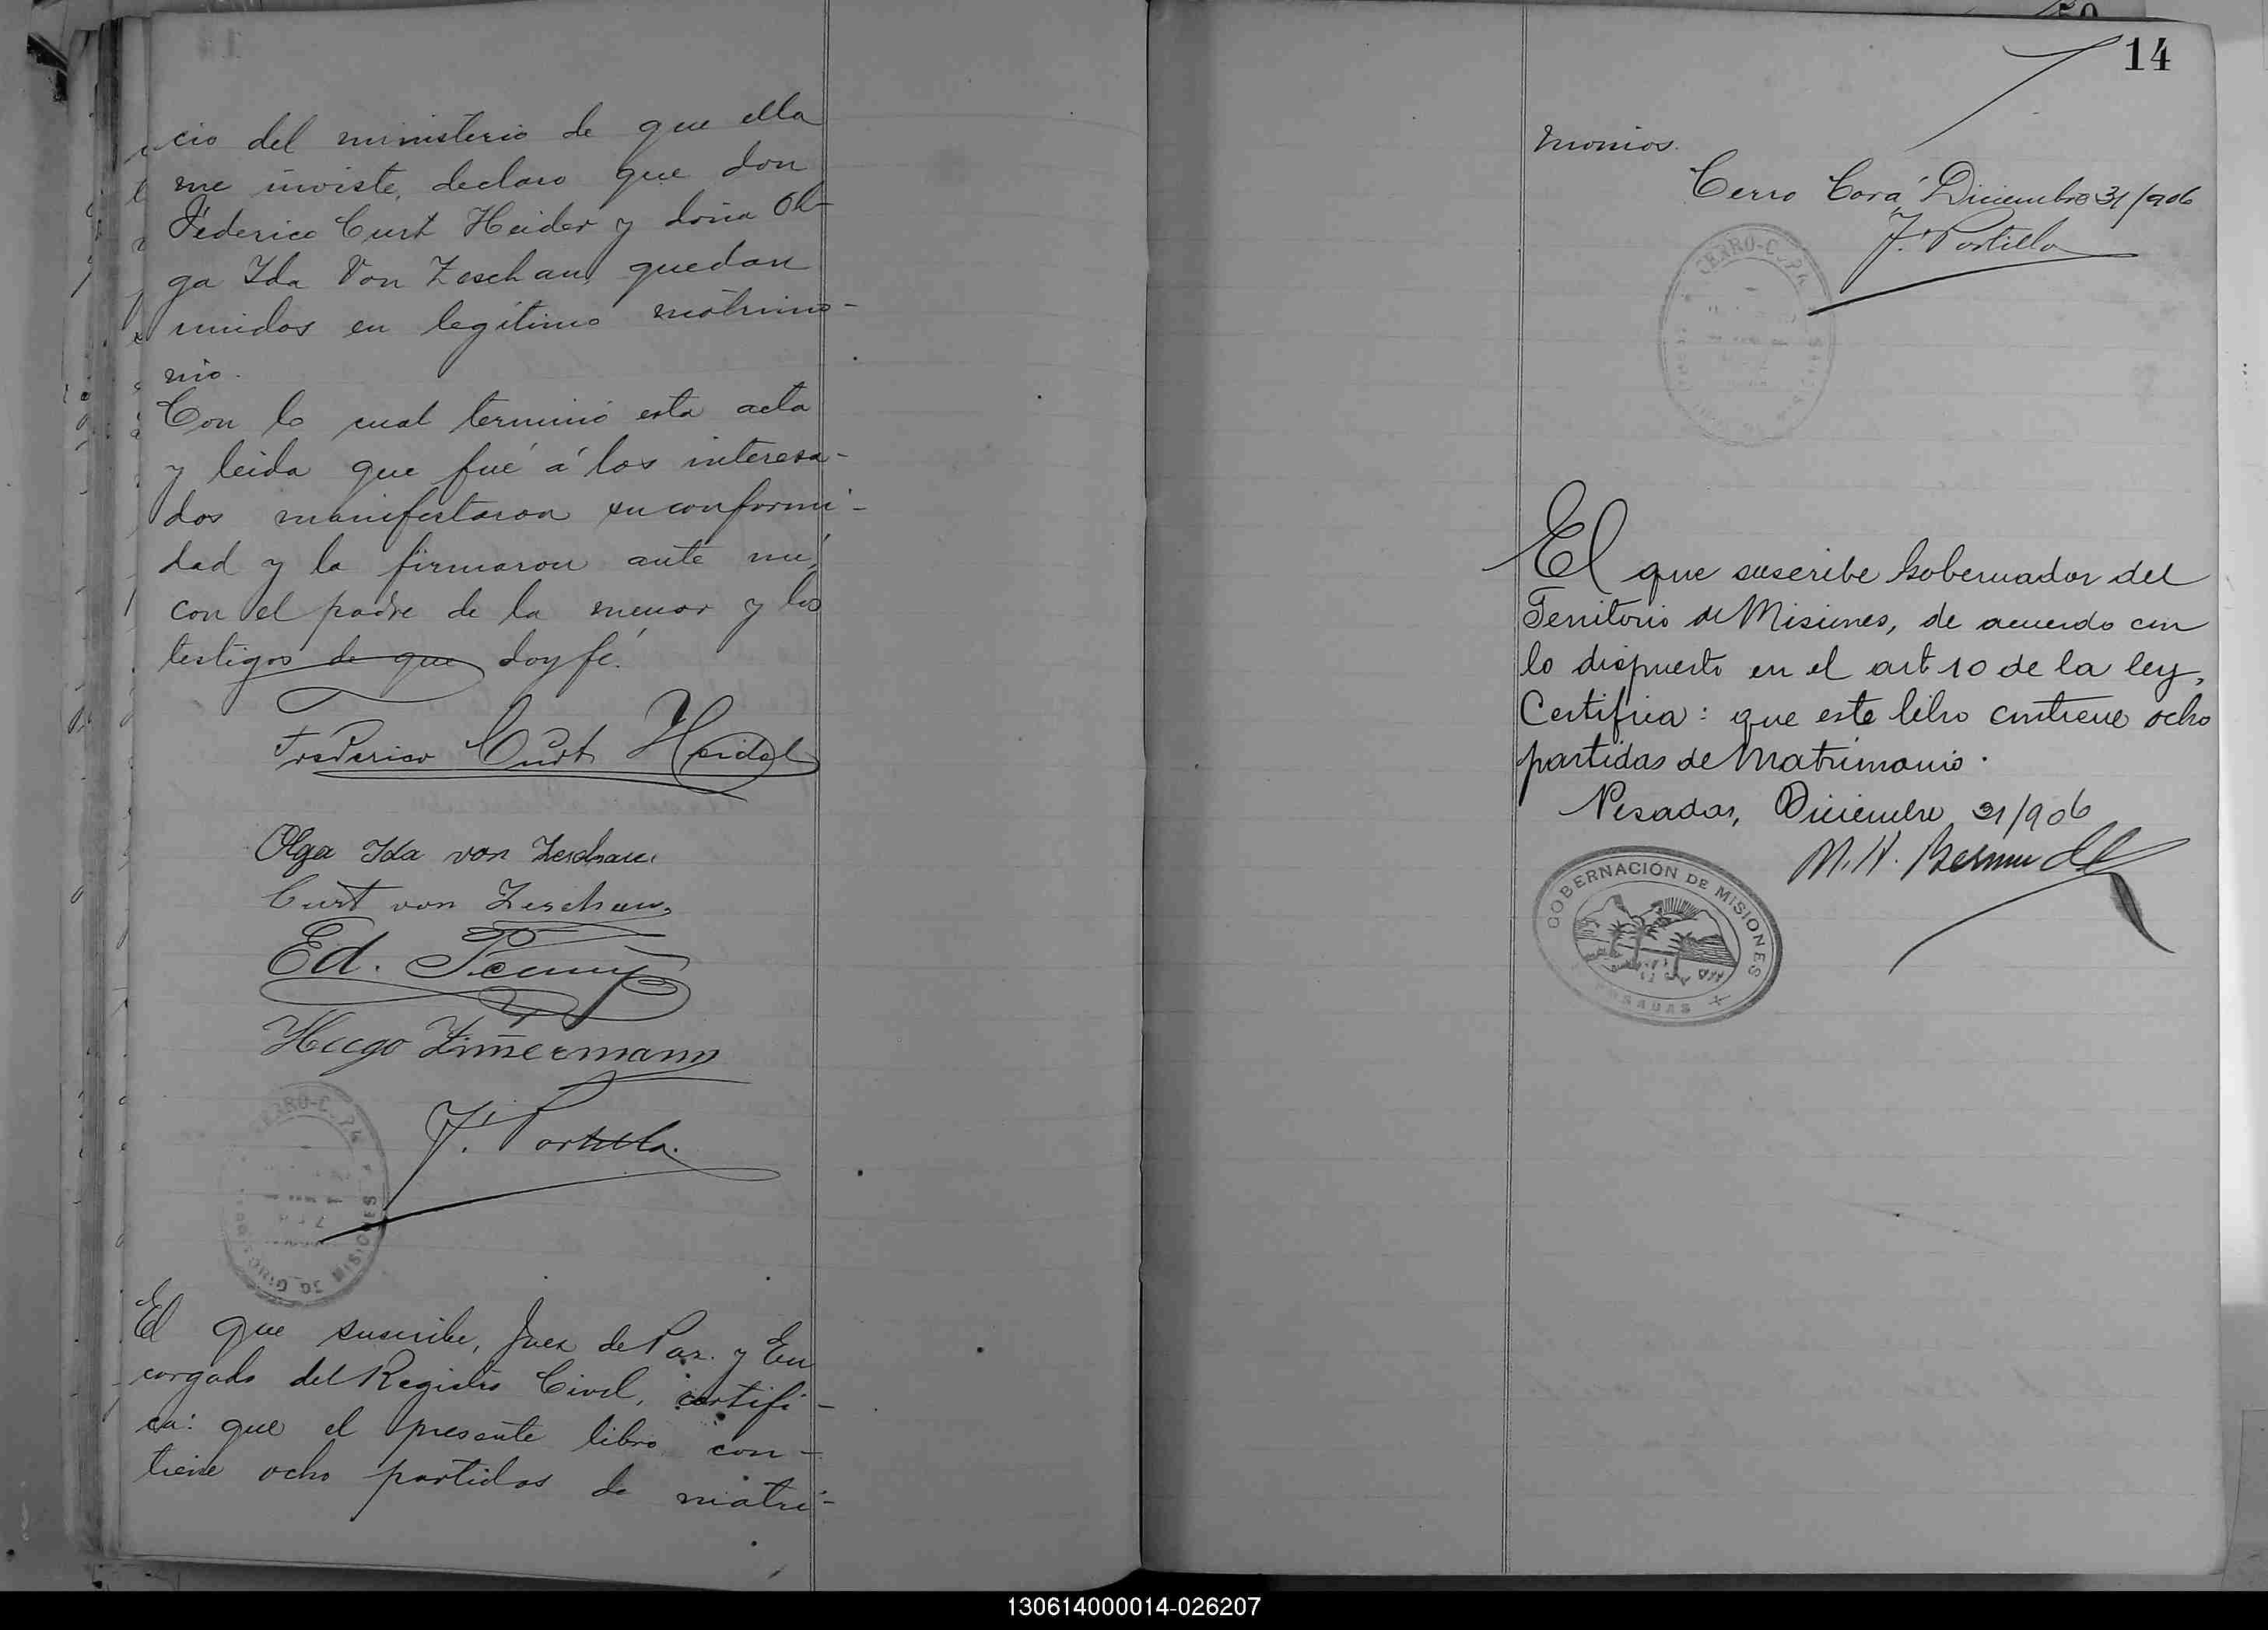 cio del ministerio de que ella
me inviste, declaro que don
Federico Curt Heider y doña Ol-
ga Ida Von Zeschau, quedan
unidos en legítimo matrimo-
nio.
Con lo cual terminó esta acta
y leida que fué á los interesa-
dos manifestaron su conformi-
dad y la firmaron ante mí,
con el padre de la menor y los
testigos de que doy fé.
Frederico Curt Heidel
Olga Ida von Zeschau
Curt von Zeschau
Ed.
Hugo Zimermann
J. Portilla
CERRO-C
MISIONES
El que suscribe, Juez de Paz y En
cargado del Registro Civil, certifi-
ca: que el presente libro con-
tiene ocho partidas de matri-
14
monios.
Cerro Corá Diciembre 31/906
J. Portilla
CERRO-C
El que suscribe Gobernador del
Territorio de Misiones, de acuerdo con
lo dispuesto en el art 10 de la ley,
Certifica: que este libro contiene ocho
partidas de Matrimonio.
Posadas, Diciembre 31/906
GOBERNACIÓN DE MISIONES
POSADAS
130614000014-026207